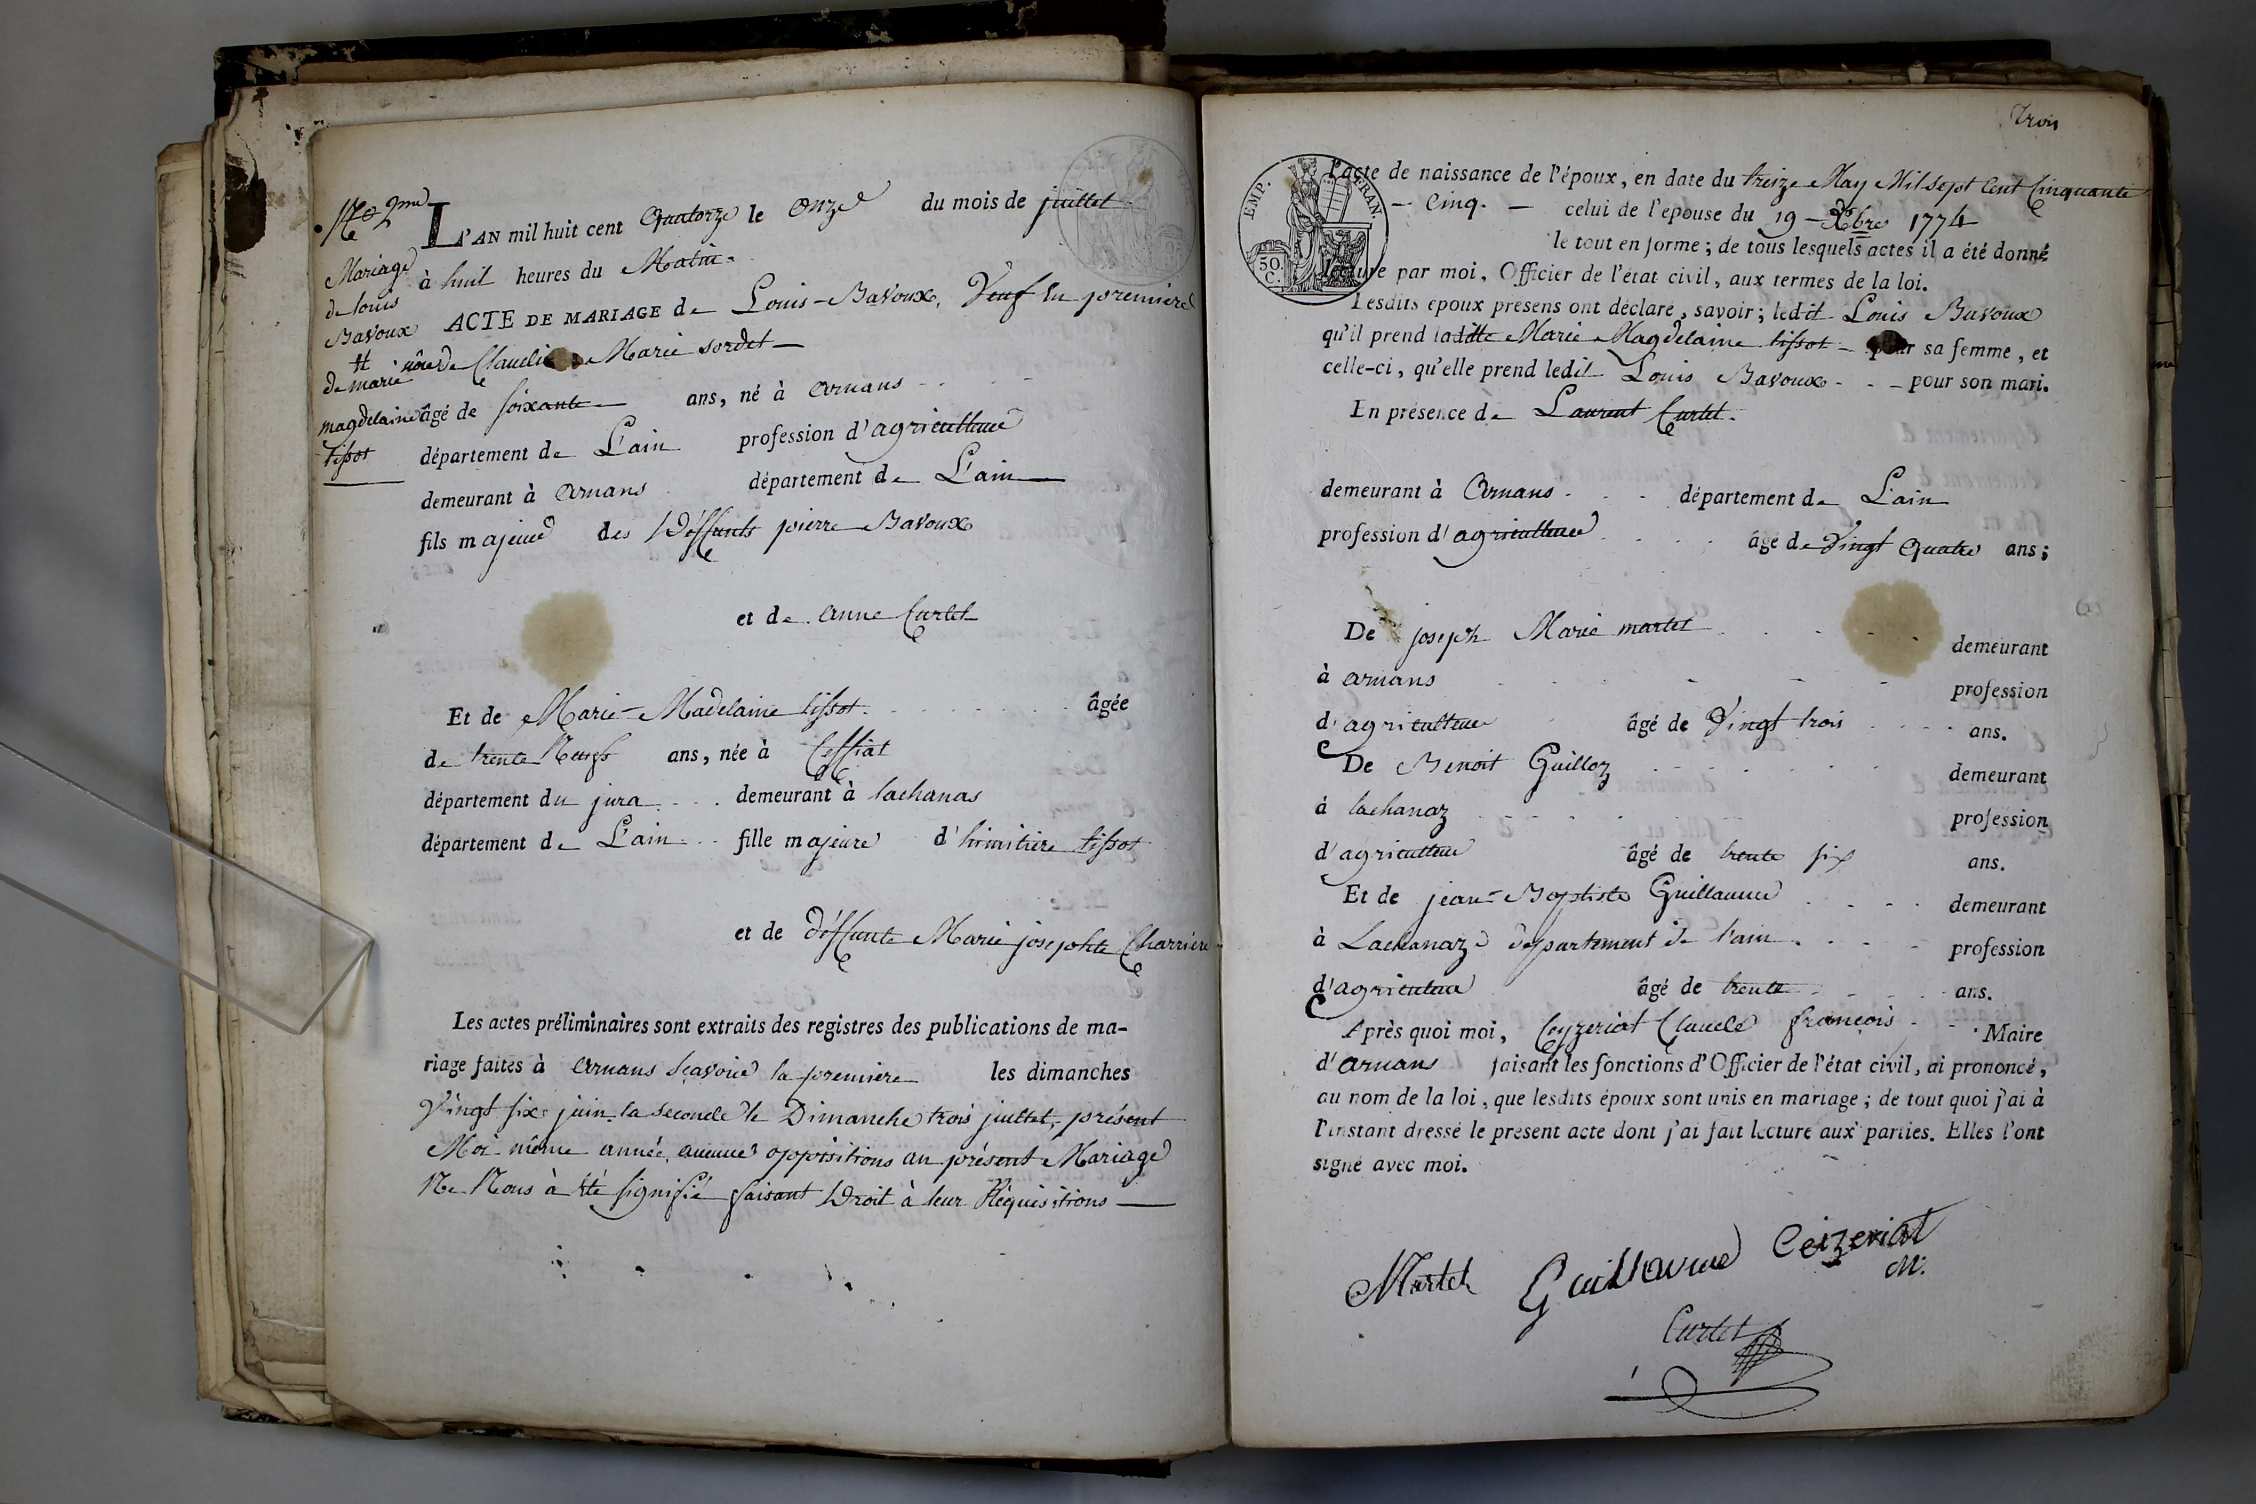 No 2me
Mariage
de louis
Bavoux
#
de marie
magdelaine
tissot
L'AN mil huit cent Quatorze le Onze du mois de juillet
à huit heures du Matin.
ACTE DE MARIAGE de Louis-Bavoux, Veuf En premiere
nôce de Claudine Marie sordet
âgé de soixante ans, né à Arnans
département de L'ain profession d'agriculteur
demeurant à Arnans département de L'ain
fils majeur des Déffunts pierre Bavoux
et de Anne Curtet
Et de Marie-Madelaine tissot âgée
de trente Neufs ans, née à Ceffiat
département du jura demeurant à lachanas
département de L'ain fille majeure d' tissot
et de déffunte Marie josephte Charriere
Les actes préliminaires sont extraits des registres des publications de ma-
riage faites à Arnans sçavoir la premiere les dimanches
Vingt six juin la seconde le Dimanche trois juillet, présent
Moi même année, aucune oppositions au présent Mariage
Ne Nous à été signifié faisant Droit à leur Réquisitions
trois
EMP. FRAN.
50 C.
l'acte de naissance de l'époux, en date du treize May Mil sept Cent Cinquante
- Cinq. - celui de l'epouse du 19 Xbre 1774
le tout en forme ; de tous lesquels actes il a été donné
lecture par moi, Officier de l'état civil, aux termes de la loi.
Lesdits epoux présens ont déclaré, savoir ; ledit Louis Bavoux
qu'il prend laditte Marie Magdelaine tissot - pour sa femme, et
celle-ci, qu'elle prend ledit Louis Bavoux - - - pour son mari.
En présence de Laurent Curtet.
demeurant à Arnans département de L'ain
profession d'agriculteur âgé de Vingt Quatre ans ;
De joseph Marie martel demeurant
à arnans profession
d'agriculteur âgé de Vingt trois ans.
De Benoit Guilloz demeurant
à lachanaz profession
d'agriculteur âgé de trente six ans.
Et de jean-Baptiste Guillaume demeurant
à Lachanaz département de l'ain profession
d'agriculteur âgé de trente ans.
Après quoi moi, Ceyzeriat Claude françois Maire
d'arnans faisant les fonctions d'Officier de l'état civil, ai prononcé,
au nom de la loi, que lesdits époux sont unis en mariage ; de tout quoi j'ai à
l'instant dressé le présent acte dont j'ai fait lecture aux parties. Elles l'ont
signé avec moi.
Martel Guillaume Ceizeriat
M.
Curtet